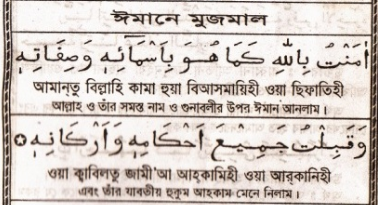 ঈমানে মুজমাল
اٰمَنْتُ بِاللهِ كَمَا هُوَ بِاَسْمَائِهٖ وَصِفَاتِهٖ
আমানতু বিল্লাহি কামা হুয়া বিআসমায়িহী ওয়া ছিফাতিহী
আল্লাহ ও তাঁর সমস্ত নাম ও গুনাবলীর উপর ঈমান আনলাম।
وَقَبِلْتُ جَمِيْعَ اَحْكَامِهٖ وَاَرْكَانِهٖ
ওয়া ক্বাবিলতু জামী'আ আহকামিহী ওয়া আরকানিহী
এবং তাঁর যাবতীয় হুকুম আহকাম মেনে নিলাম।